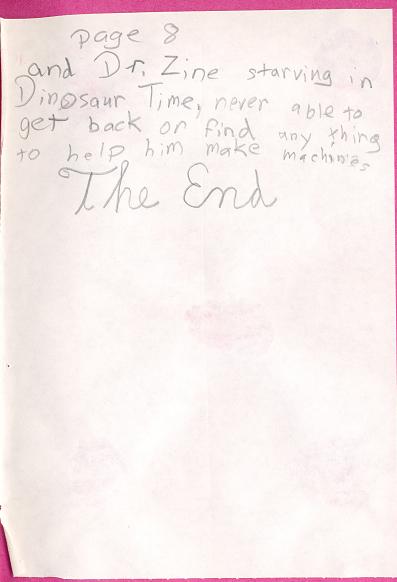 page 8
and Dr. Zine starving in
Dinosaur Time, never able to
get back or find any thing
to help him make machines
The End